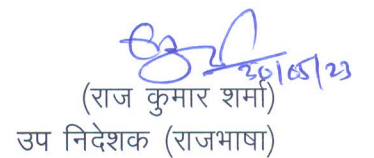 30/05/23
(राज कुमार शर्मा)
उप निदेशक (राजभाषा)